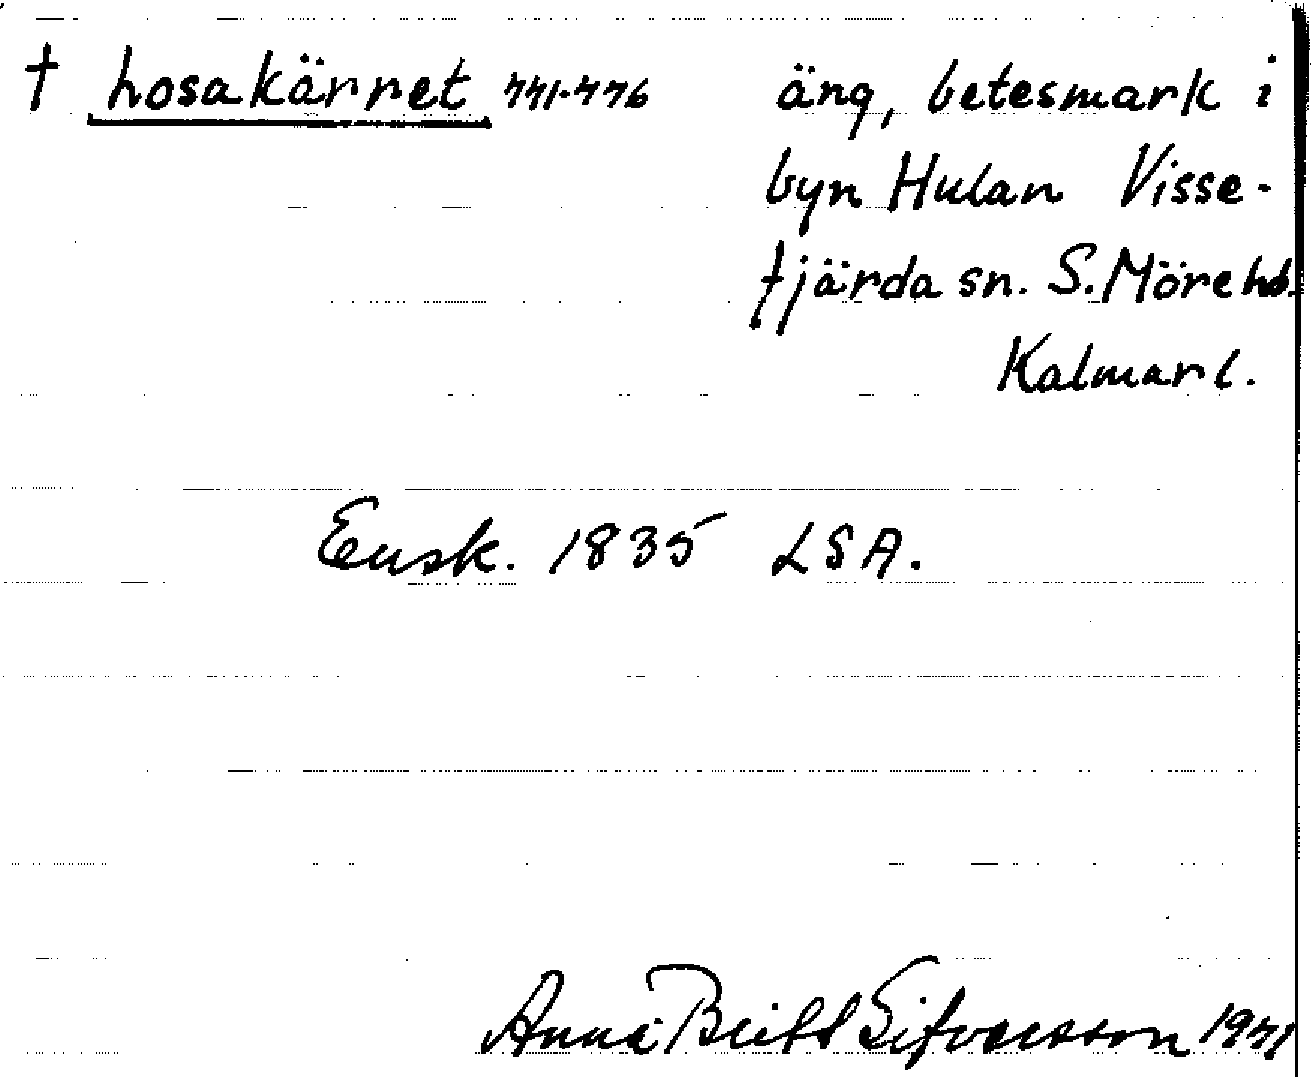 † hosakärret 441-476 äng, betesmark i
byn Hulan Visse-
fjärda sn. S. Möre hd.
Kalmar l.
Ensk. 1835 LSA.
Anna Britt Sifvarsson 1941